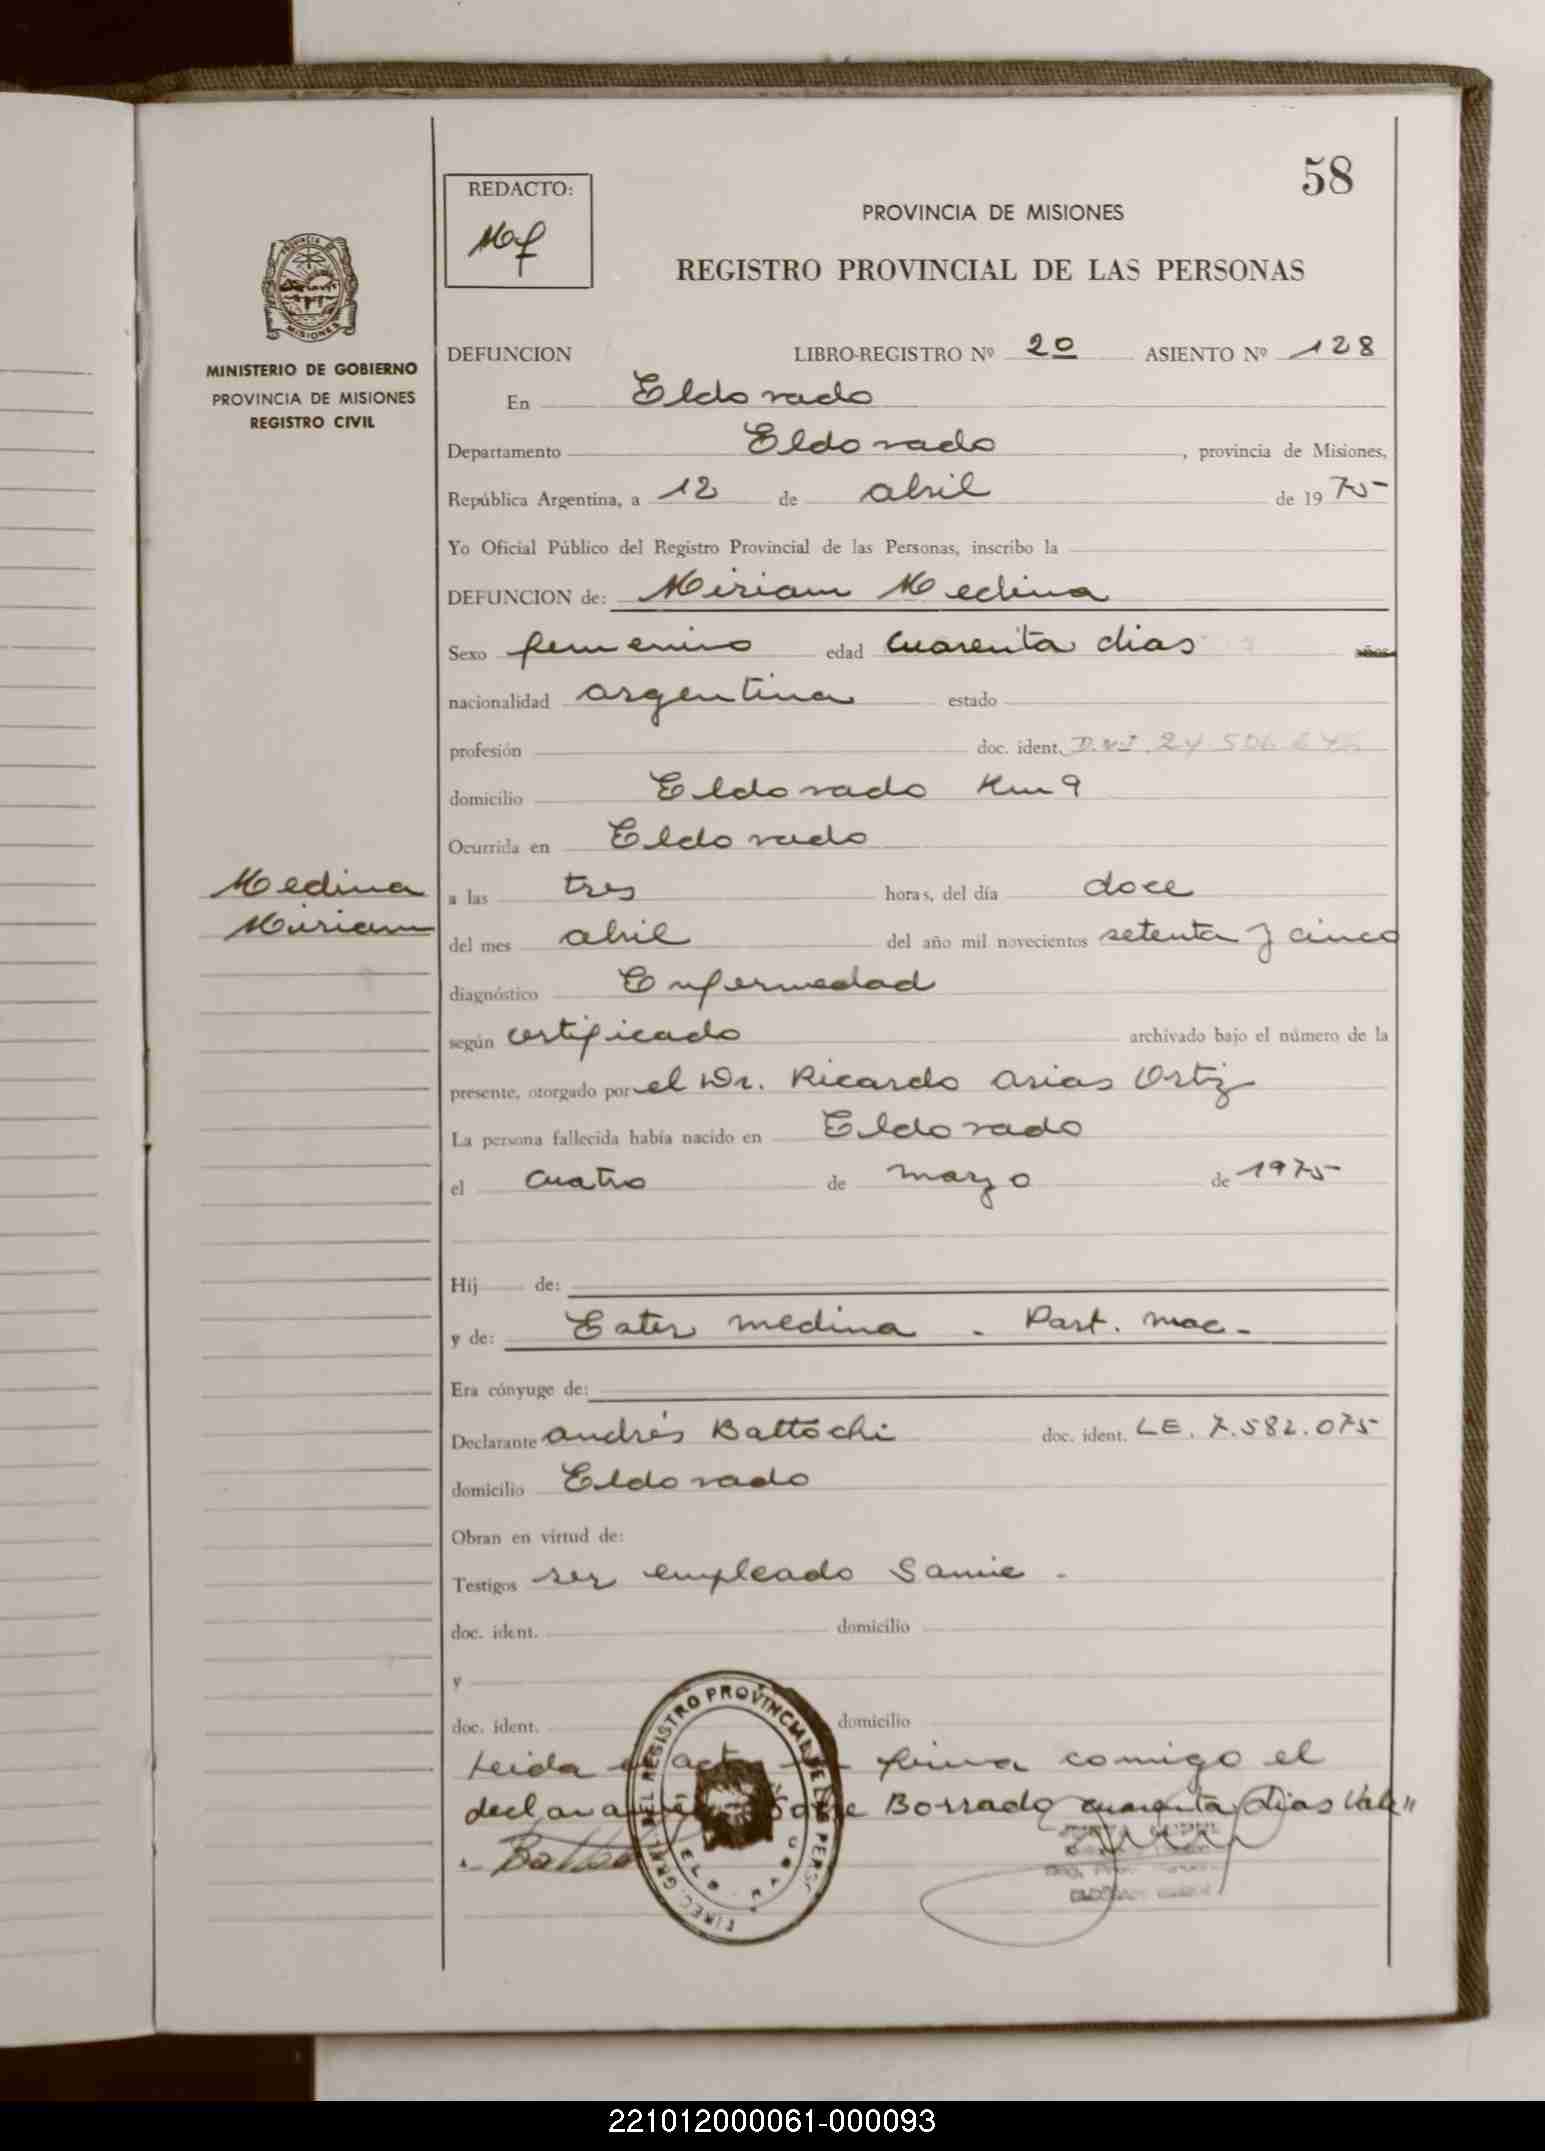 58
REDACTO:
PROVINCIA DE MISIONES
REGISTRO PROVINCIAL DE LAS PERSONAS
MINISTERIO DE GOBIERNO
PROVINCIA DE MISIONES
REGISTRO CIVIL
DEFUNCION LIBRO-REGISTRO Nº 20 ASIENTO Nº 128
En Eldorado
Departamento Eldorado, provincia de Misiones,
República Argentina, a 12 de abril de 1975
Yo Oficial Público del Registro Provincial de las Personas, inscribo la
DEFUNCION de: Miriam Medina
Sexo femenino edad cuarenta dias años
nacionalidad argentina estado
profesión doc. ident. D.N.I. 24.506
domicilio Eldorado Km 9
Ocurrida en Eldorado
Medina
Miriam
a las tres horas, del día doce
del mes abril del año mil novecientos setenta y cinco
diagnóstico Enfermedad
según certificado archivado bajo el número de la
presente, otorgado por el Dr. Ricardo Arias Ortiz
La persona fallecida había nacido en Eldorado
el cuatro de marzo de 1975
Hij de:
y de: Ester medina - Part. mac -
Era cónyuge de:
Declarante Andrés Battochi doc. ident. LE. 7.582.075
domicilio Eldorado
Obran en virtud de:
Testigos ser empleado Samic -
doc. ident. domicilio
y
doc. ident. domicilio
Leida el acta firma comigo el
declarante Sobre Borrado cuarenta dias Vale"
DIREC. GRAL. DEL REGISTRO PROVINCIAL DE LAS PERS
221012000061-000093